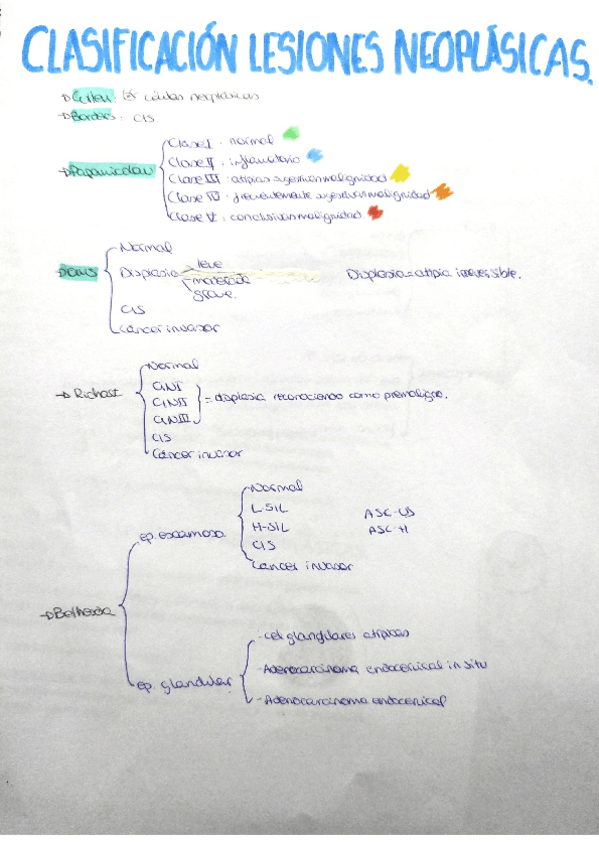 CLASIFICACIÓN LESIONES NEOPLÁSICAS.
→ Cullen: células neoplásicas
→ Borders: CIS
→ Papanicolau
Clase I: normal
Clase II: inflamatorio
Clase III: atipias sugestivas malignidad
Clase IV: frecuentemente sugestivas malignidad
Clase V: conclusivas malignidad.
→ OMS
Normal
Displasia
leve
moderada
grave.
CIS
Cáncer invasor
Displasia = atipia irreversible.
→ Richart
Normal
CIN I
CIN II
CIN III
= displasia reconociendo como premaligno.
CIS
Cáncer invasor
→ Bethesda
ep. escamosa
Normal
L-SIL
H-SIL
CIS
Cáncer invasor
ASC-US
ASC-H
ep. glandular
- cel glandulares atípicas
- Adenocarcinoma endocervical in situ
- Adenocarcinoma endocervical